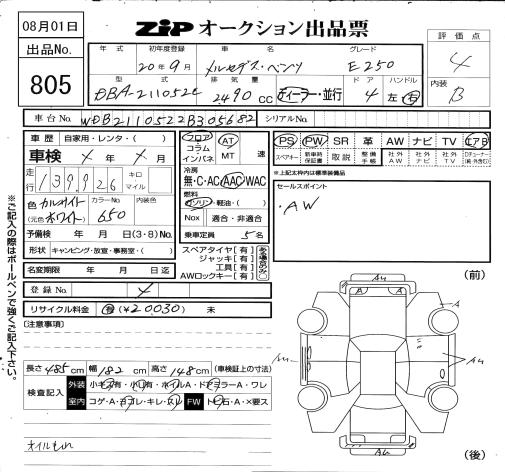 08月01日
ZIPオークション出品票
評価点
4
内装
B
出品No.
805
年式 初年度登録 車名 グレード
20年9月 メルセデス・ベンツ E-250
型式 排気量 ドア ハンドル
DBA-211052C 2490CC ディーラー・並行 4 左 右
車台No. WDB2110522B305682 シリアルNo.
車歴 自家用・レンタ・( )
車検 メ年 メ月
走行 139,926 キロ マイル
色 カルサイト カラーNo. 内装色
(元色 ホワイト) 650
予備検 年 月 日(3・8)No.
形状 キャンピング・放宣・事務室・( )
名変期限 年 月 日迄
登録No. メ
リサイクル料金 有(¥20030) 未
フロア コラム インパネ
AT MT 速
冷房
無・C・AC AAC WAC
燃料
ガソリン・軽油・( )
Nox 適合・非適合
乗車定員 5名
スペアタイヤ[有]
ジャッキ[有]
工具[有]
AWロックキー[有]
PS PW SR 革 AW ナビ TV エアB
スペアキー 新車時保証書 取説 整備手帳 社外AW 社外ナビ 社外TV
*上記太枠内は標準装備品
セールスポイント
・AW
※ご記入の際はボールペンで強くご記入下さい。
[注意事項]
長さ485cm 幅182cm 高さ148cm (車検証上の寸法)
検査記入 外装 小キズ有・小凹有・ホイルA・ドアミラーA・ワレ
室内 コゲ・A・ヨゴレ・キレ・スレ FW トビ石・A・×要ス
オイルもれ
(前)
AU
A A
A
AU
AU
AU
(後)